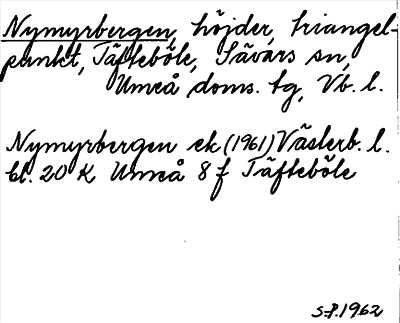 Nymyrbergen, höjder, triangel-
punkt, Täfteböle, Sävars sn,
Umeå doms. tg, Vb. l.
Nymyrbergen ek (1961) Västerb. l.
bl. 20 K Umeå 8 f Täfteböle
S-P. 1962